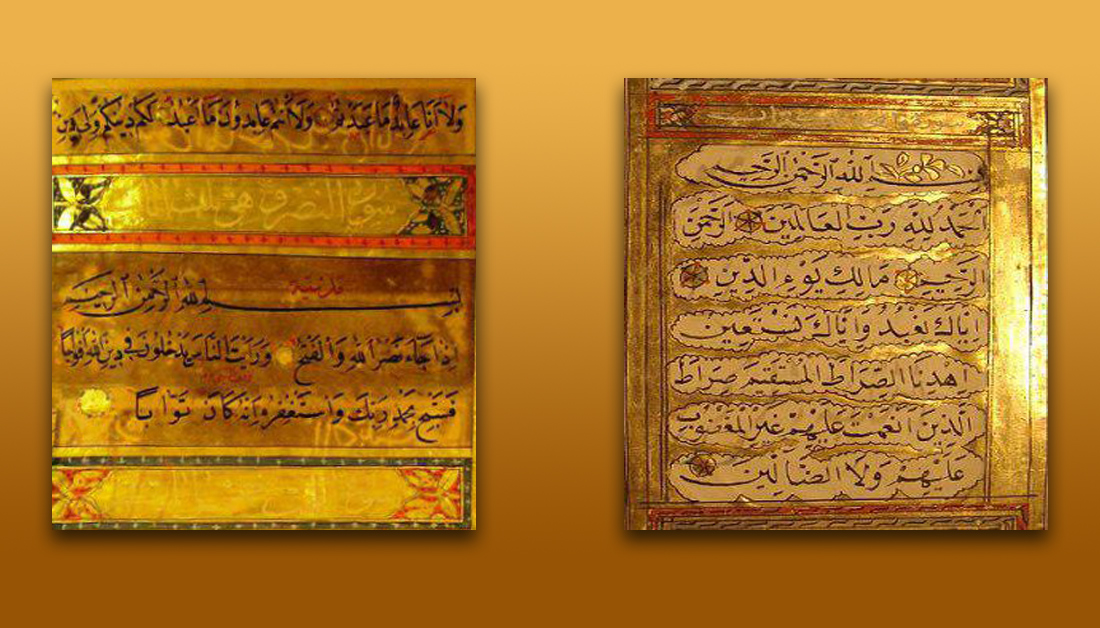 بسم الله الرحمن الرحيم
الحمد لله رب العالمين الرحمن
الرحيم مالك يوم الدين
اياك نعبد واياك نستعين
اهدنا الصراط المستقيم صراط
الذين انعمت عليهم غير المغضوب
عليهم ولا الضالين
ولا أنا عابد ما عبدتم ولا أنتم عابدون ما أعبد لكم دينكم ولي دين
سورة النصر وهي
مدنية
بسم الله الرحمن الرحيم
اذا جاء نصر الله والفتح ورايت الناس يدخلون في دين الله افواجا
فسبح بحمد ربك واستغفره انه كان توابا